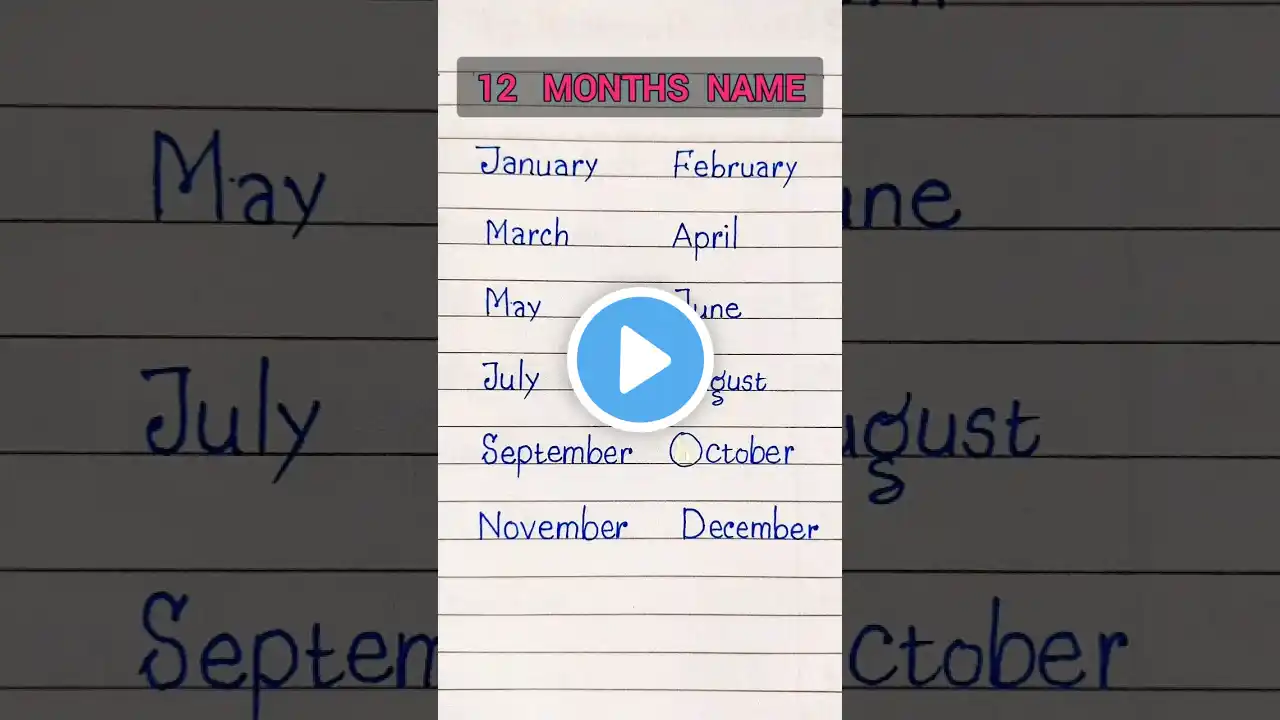 12 MONTHS NAME
January February
March April
May June
July August
September October
November December